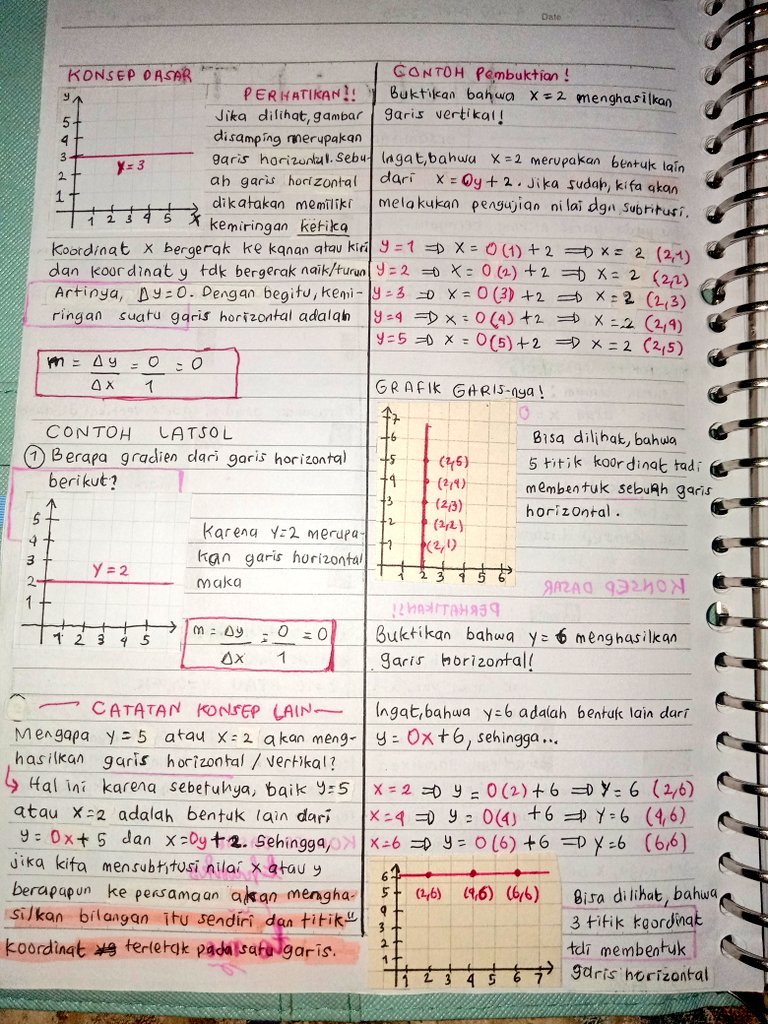 Date
KONSEP DASAR
y
5
4
3
2
1
Y = 3
1 2 3 4 5 X
PERHATIKAN!!
Jika dilihat, gambar
disamping merupakan
garis horizontal. Sebu-
ah garis horizontal
dikatakan memiliki
kemiringan ketika
Koordinat X bergerak ke kanan atau kiri
dan koordinat y tdk bergerak naik/turun
Artinya, Δy=0. Dengan begitu, kemi-
ringan suatu garis horizontal adalah
m = Δy/Δx = 0/1 = 0
CONTOH LATSOL
1 Berapa gradien dari garis horizontal
berikut?
5
4
3
2
1
Y = 2
1 2 3 4 5
Karena Y=2 merupa-
kan garis horizontal
maka
m = Δy/Δx = 0/1 = 0
CATATAN KONSEP LAIN
Mengapa y = 5 atau x = 2 akan meng-
hasilkan garis horizontal / vertikal?
↳ Hal ini karena sebetulnya, baik Y=5
atau X=2 adalah bentuk lain dari
y = 0x + 5 dan x=0y+2. Sehingga,
jika kita mensubtitusi nilai x atau y
berapapun ke persamaan akan mengha-
silkan bilangan itu sendiri dan titik"
koordinat yg terletak pada satu garis.
CONTOH Pembuktian!
Buktikan bahwa X = 2 menghasilkan
garis vertikal!
Ingat, bahwa X = 2 merupakan bentuk lain
dari X = 0y + 2. Jika sudah, kita akan
melakukan pengujian nilai dgn subtitusi.
y = 1 ⇒ X = 0(1) + 2 ⇒ X = 2 (2,1)
y = 2 ⇒ X = 0(2) + 2 ⇒ X = 2 (2,2)
y = 3 ⇒ X = 0(3) + 2 ⇒ X = 2 (2,3)
y = 4 ⇒ X = 0(4) + 2 ⇒ X = 2 (2,4)
y = 5 ⇒ X = 0(5) + 2 ⇒ X = 2 (2,5)
GRAFIK GARIS-nya!
7
6
5 (2,5)
4 (2,4)
3 (2,3)
2 (2,2)
1 (2,1)
1 2 3 4 5 6
Bisa dilihat, bahwa
5 titik koordinat tadi
membentuk sebuah garis
horizontal.
KONSEP DASAR
PERHATIKAN!!
Buktikan bahwa y = 6 menghasilkan
garis horizontal!
Ingat, bahwa y=6 adalah bentuk lain dari
y = 0x + 6, sehingga...
X = 2 ⇒ y = 0(2) + 6 ⇒ Y = 6 (2,6)
X = 4 ⇒ y = 0(4) + 6 ⇒ Y = 6 (4,6)
X = 6 ⇒ y = 0(6) + 6 ⇒ Y = 6 (6,6)
6
5 (2,6) (4,6) (6,6)
4
3
2
1
1 2 3 4 5 6 7
Bisa dilihat, bahwa
3 titik koordinat
tdi membentuk
garis horizontal